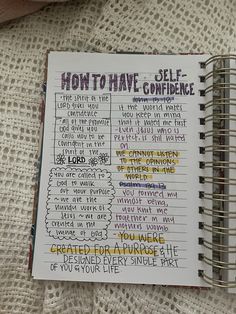 HOW TO HAVE SELF-CONFIDENCE
* the spirit of the
LORD gives you
confidence
* all of the promises
God gives you
calls you to be
confident in the
spirit of the
LORD
you are called by
God to walk
out your purpose
~ we are the
handy work of
Jesus ~ we are
created in the
image of God
John 15:18
if the world hates
you keep in mind
that it hated me first
- even Jesus who is
perfect is still hated
on
WE CANNOT LISTEN
TO THE OPINIONS
OF OTHERS IN THE
WORLD
psalm 139:13
you formed my
inmost being,
you knit me
together in my
mothers womb
YOU WERE
CREATED FOR A PURPOSE & HE
DESIGNED EVERY SINGLE PART
OF YOU & YOUR LIFE